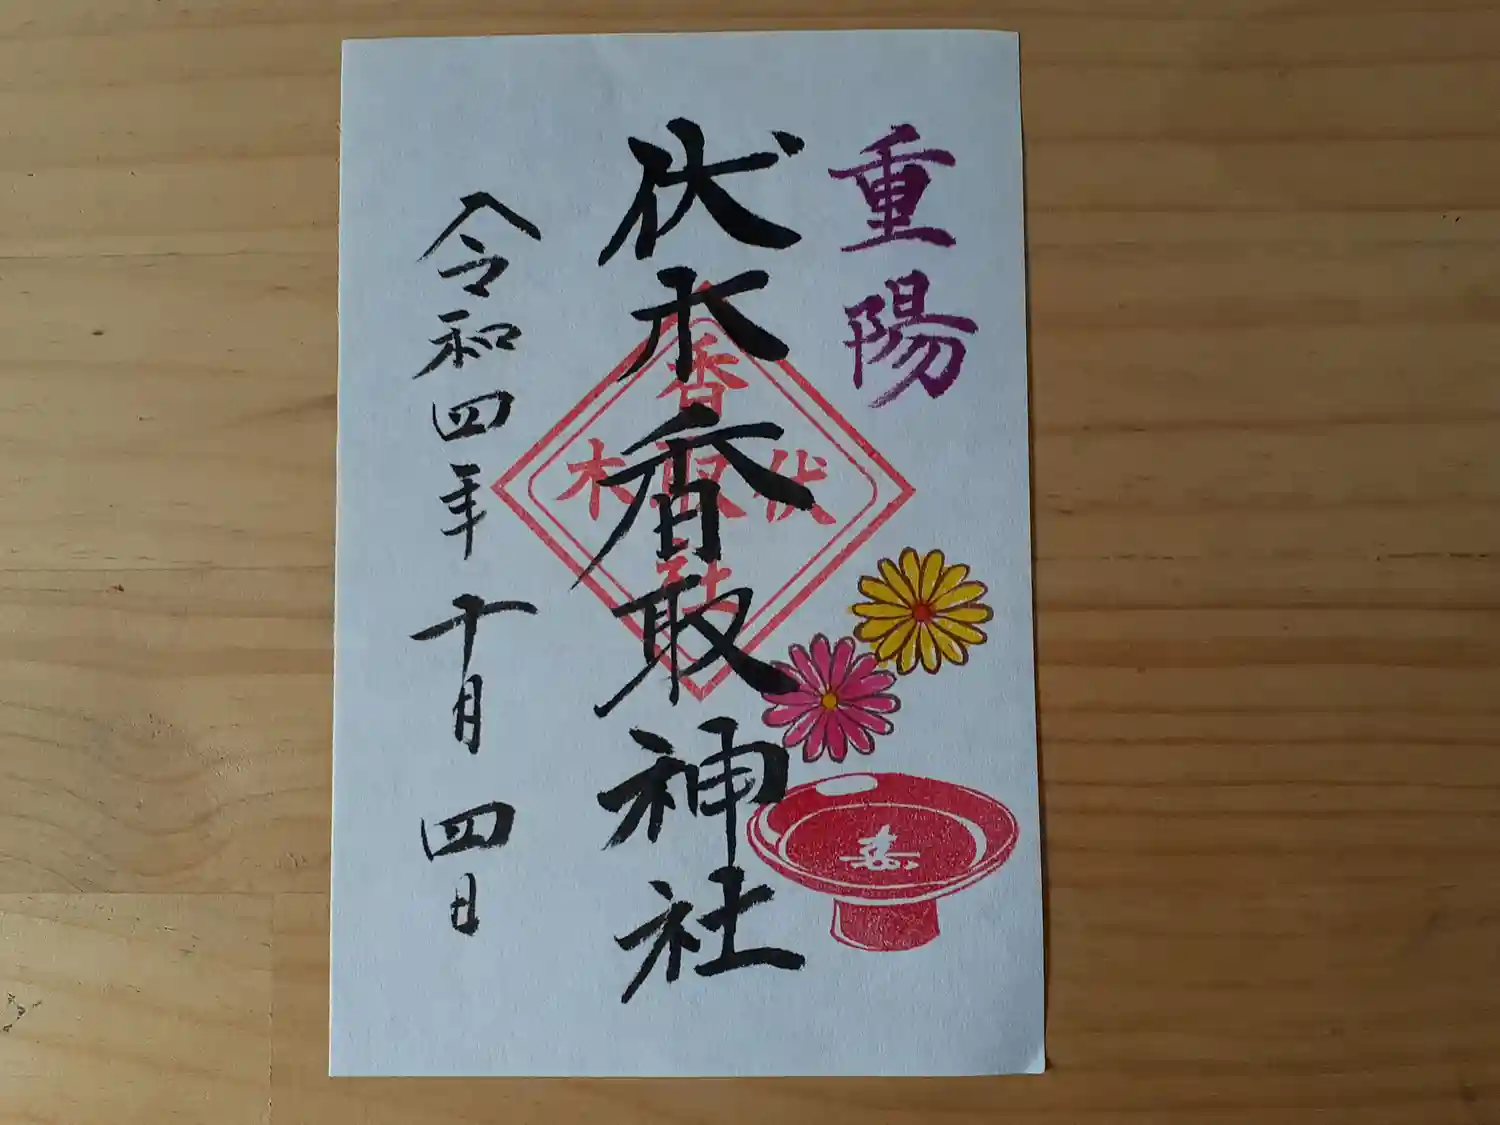 重陽
伏木香取神社
令和四年十月四日
香
伏取木
社
寿